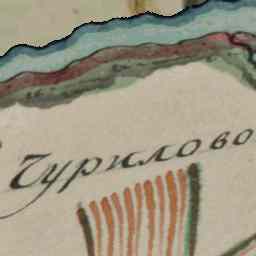 Чурилово